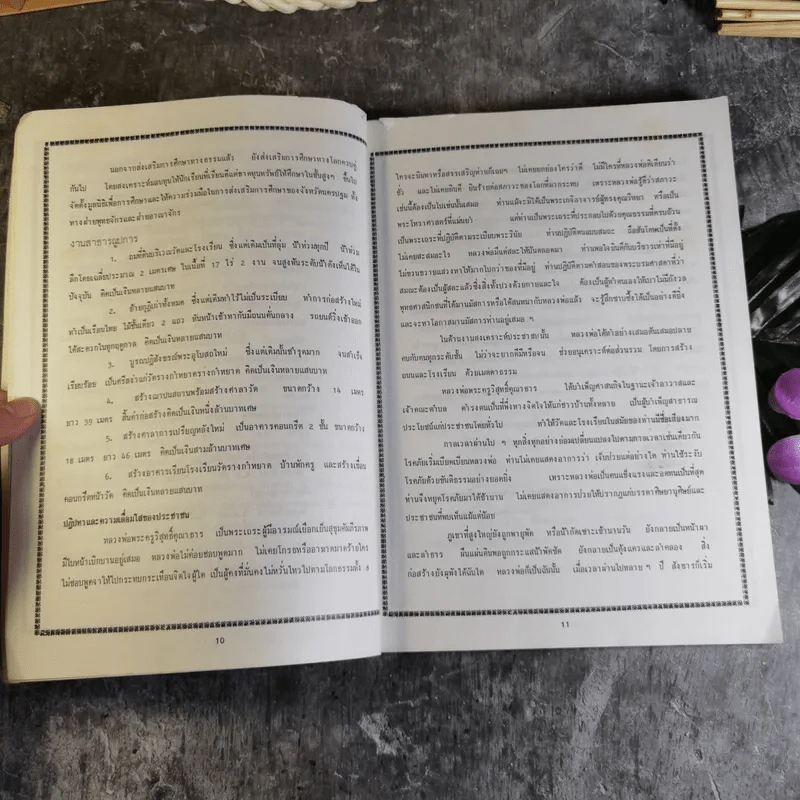 นอกจากส่งเสริมการศึกษาทางธรรมแล้ว ยังส่งเสริมการศึกษาทางโลกควบคู่
กันไป โดยสงเคราะห์มอบทุนให้นักเรียนที่เรียนดีแต่ขาดทุนทรัพย์ให้ศึกษาในชั้นสูงๆ ขึ้นไป
จัดตั้งมูลนิธิเพื่อการศึกษาและให้ความร่วมมือในการส่งเสริมการศึกษาของจังหวัดนครปฐม ทั้ง
ทางฝ่ายพุทธจักรและฝ่ายอาณาจักร
งานสาธารณูปการ
1. ถมที่ดินบริเวณวัดและโรงเรียน ซึ่งแต่เดิมเป็นที่ลุ่ม น้ำท่วมทุกปี น้ำท่วม
ลึกโดยเฉลี่ยประมาณ 2 เมตรเศษ ในเนื้อที่ 17 ไร่ 2 งาน จนสูงพ้นระดับน้ำดังเห็นได้ใน
ปัจจุบัน คิดเป็นเงินหลายแสนบาท
2. ย้ายกุฏิเก่าทั้งหมด ซึ่งแต่เดิมทำไว้ไม่เป็นระเบียบ ทำการก่อสร้างใหม่
ทำเป็นเรือนไทย ไม้ชั้นเดียว 2 แถว หันหน้าเข้าหากันมีถนนคั่นกลาง รถยนต์วิ่งเข้าออก
ได้สะดวกในทุกฤดูกาล คิดเป็นเงินหลายแสนบาท
3. บูรณปฏิสังขรณ์พระอุโบสถใหม่ ซึ่งแต่เดิมนั้นชำรุดมาก จนสำเร็จ
เรียบร้อย เป็นศรีสง่าแก่วัดรางกำหยาดรางกำหยาด คิดเป็นเงินหลายแสนบาท
4. สร้างฌาปนสถานพร้อมสร้างศาลาวัด ขนาดกว้าง 14 เมตร
ยาว 39 เมตร สิ้นค่าก่อสร้างคิดเป็นเงินหนึ่งล้านบาทเศษ
5. สร้างศาลาการเปรียญหลังใหม่ เป็นอาคารคอนกรีต 2 ชั้น ขนาดกว้าง
18 เมตร ยาว 46 เมตร คิดเป็นเงินสามล้านบาทเศษ
6. สร้างอาคารเรียนโรงเรียนวัดรางกำหยาด บ้านพักครู และสร้างเขื่อน
คอนกรีตหน้าวัด คิดเป็นเงินหลายแสนบาท
ปฏิปทาและความเลื่อมใสของประชาชน
หลวงพ่อพระครูวิสุทธิ์คุณาธาร เป็นพระเถระผู้มีอารมณ์เยือกเย็นสุขุมคัมภีรภาพ
มีใบหน้าเบิกบานอยู่เสมอ หลวงพ่อไม่ค่อยชอบพูดมาก ไม่เคยโกรธหรืออาฆาตมาดร้ายใคร
ไม่ชอบพูดจาให้ไปกระทบกระเทือนจิตใจผู้ใด เป็นผู้คงที่มั่นคงไม่หวั่นไหวไปตามโลกธรรมทั้ง 8
10
ใครจะนินทาหรือสรรเสริญท่านก็เฉยๆ ไม่เคยยกย่องใครว่าดี ไม่มีใครที่หลวงพ่อติเตียนว่า
ชั่ว และไม่เคยยินดี ยินร้ายต่อสภาวะของโลกที่มากระทบ เพราะหลวงพ่อรู้ดีว่าสภาวะ
เช่นนี้ต้องเป็นไปเช่นนั้นเสมอ ท่านแม้จะมิได้เป็นพระเกจิอาจารย์ผู้ทรงคุณวิทยา หรือเป็น
พระโหราศาสตร์ที่แม่นยำ แต่ท่านเป็นพระเถระที่ประกอบไปด้วยคุณธรรมที่ครบถ้วน
เป็นพระเถระที่ปฏิบัติตามระเบียบพระวินัย ท่านปฏิบัติตนแบบสมถะ ถือสันโดษเป็นที่ตั้ง
ไม่เคยสะสมอะไร หลวงพ่อมีแต่สละให้ปันตลอดมา ท่านพอใจยินดีกับบริขารเท่าที่มีอยู่
ไม่ขวนขวายแสวงหาให้มากไปกว่าของที่มีอยู่ ท่านปฏิบัติตามคำสอนของพระบรมศาสดาที่ว่า
สมณะต้องเป็นผู้สละแล้วซึ่งสิ่งทั้งปวงด้วยกายและใจ ต้องเป็นผู้ทำตนเองให้เบาไม่มีกังวล
พุทธศาสนิกชนที่ได้มานมัสการหรือได้สนทนากับหลวงพ่อแล้ว จะรู้สึกซาบซึ้งได้เป็นอย่างดียิ่ง
และจะหาโอกาสมานมัสการท่านอยู่เสมอ ๆ
ในด้านงานสงเคราะห์ประชาชนนั้น หลวงพ่อได้ทำอย่างเสมอต้นเสมอปลาย
คบกับคนทุกระดับชั้น ไม่ว่าจะยากดีมีหรือจน ช่วยอนุเคราะห์ต่อส่วนรวม โดยการสร้าง
ถนนและโรงเรียน ด้วยเมตตาธรรม
หลวงพ่อพระครูวิสุทธิ์คุณาธาร ได้บำเพ็ญศาสนกิจในฐานะเจ้าอาวาสและ
เจ้าคณะตำบล ดำรงตนเป็นที่พึ่งทางจิตใจให้แก่ชาวบ้านทั้งหลาย เป็นผู้บำเพ็ญสาธารณ
ประโยชน์แก่ประชาชนโดยทั่วไป ทำให้วัดและโรงเรียนในสมัยของท่านมีชื่อเสียงมาก
กาลเวลาผ่านไป ๆ ทุกสิ่งทุกอย่างย่อมเปลี่ยนแปลงไปตามกาลเวลาเช่นเดียวกัน
โรคภัยเริ่มเบียดเบียนหลวงพ่อ ท่านไม่เคยแสดงอาการว่า เจ็บป่วยแต่อย่างใด ท่านใช้ระงับ
โรคภัยด้วยขันติธรรมอย่างยอดยิ่ง เพราะหลวงพ่อเป็นคนแข็งแรงและอดทนเป็นที่สุด
ท่านจึงหยุดโรคภัยมาได้ช้านาน ไม่เคยแสดงอาการป่วยให้ปรากฏแก่บรรดาศิษยานุศิษย์และ
ประชาชนที่พบเห็นแม้แต่น้อย
ภูเขาที่สูงใหญ่ยังถูกพายุพัด หรือน้ำกัดเซาะเข้านานวัน ยังกลายเป็นหน้าผา
และลำธาร ผืนแผ่นดินพอถูกกระแสน้ำพัดขัด ยังกลายเป็นคุ้งแควและลำคลอง สิ่ง
ก่อสร้างยังผุพังได้ฉันใด หลวงพ่อก็เป็นฉันนั้น เมื่อเวลาผ่านไปหลาย ๆ ปี สังขารก็เริ่ม
11